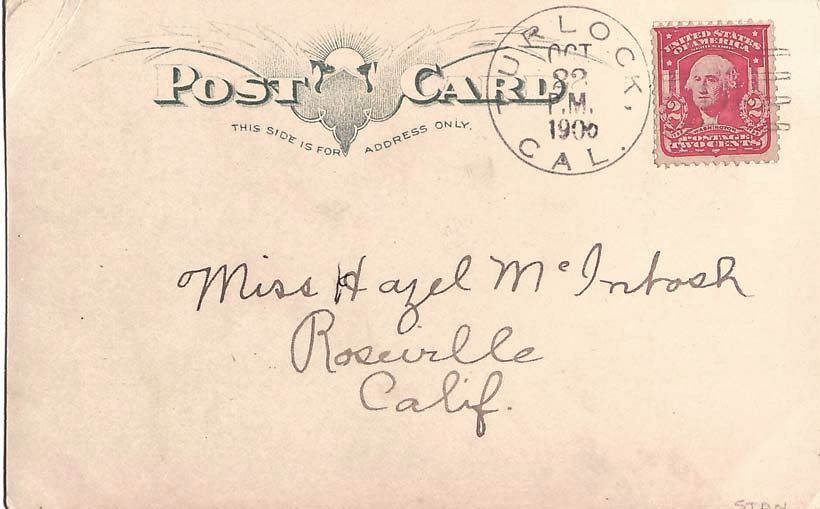 POST CARD
THIS SIDE IS FOR ADDRESS ONLY.
TURLOCK, CAL.
OCT
P.M.
UNITED STATES
OF AMERICA
2 2
WASHINGTON
POSTAGE
TWO CENTS
Miss Hazel McIntosh
Roseville
Calif.
STAN